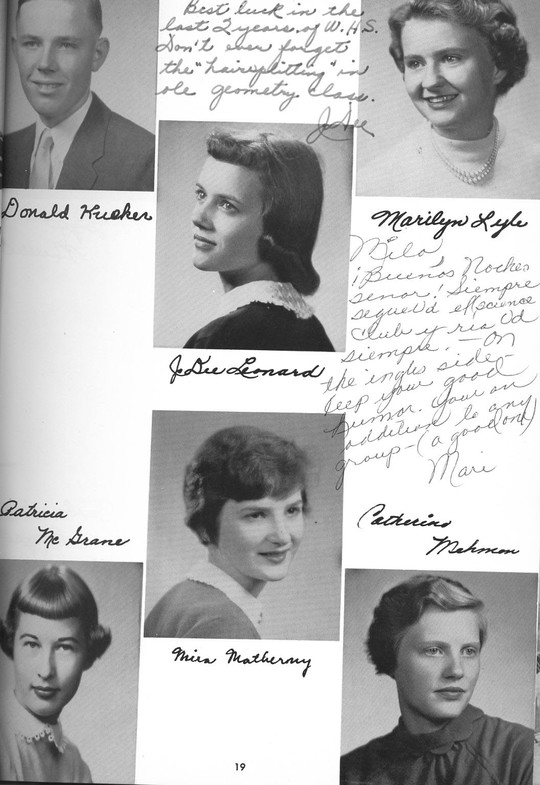 Best luck in the
last 2 years of W.H.S.
Don't ever forget
the "hairsplitting" in
ole geometry class.
JoDee
Donald Kucker
Marilyn Lyle
JoDee Leonard
Milo
¡Buenos Noches
senor! Siempre
el science
Club y ria Vd
siempre. — On
the ingles side-
keep your good
humor. Your an
addition to any
group- (a good one)
Mari
Patricia
Mc Grane
Catherine
Mehmen
Mira Matherny
19